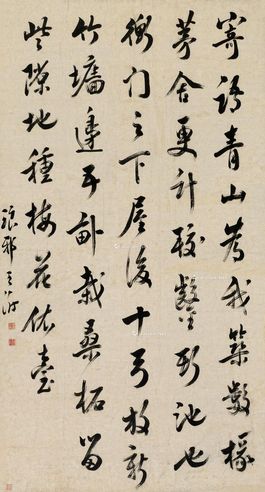 寄語青山為我築數椽
茅舍更計鑿池也
衡門之下屋後十弓放新
竹墻邊五畝栽桑柘留
些隙地種梅花依臺
琅邪王澍